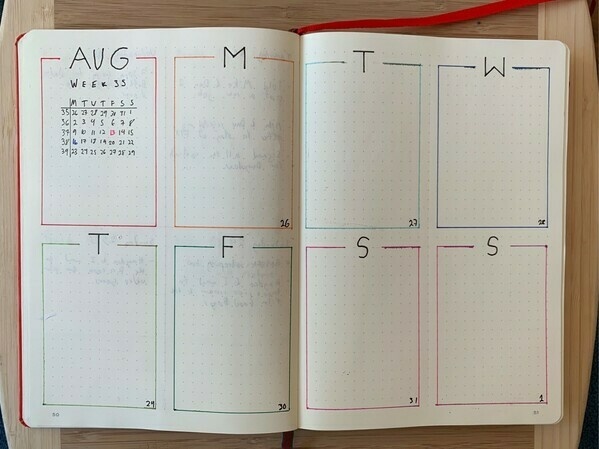 AUG
WEEK 35
M T W T F S S
35 26 27 28 29 30 31 1
36 2 3 4 5 6 7 8
37 9 10 11 12 13 14 15
38 16 17 18 19 20 21 22
39 23 24 25 26 27 28 29
M
26
T
27
W
28
T
29
F
30
S
31
S
1